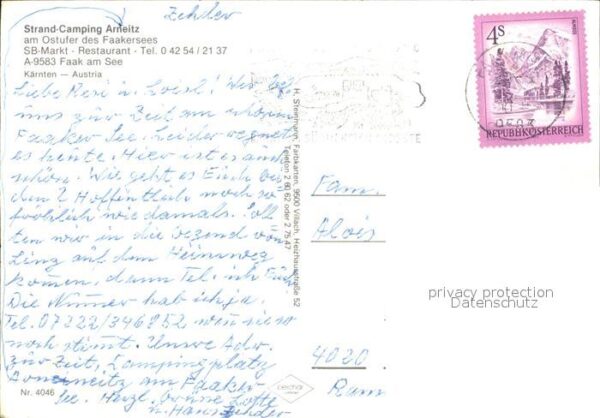 Zehder
Strand-Camping Arneitz
am Ostufer des Faakersees
SB-Markt · Restaurant · Tel. 0 42 54 / 21 37
A-9583 Faak am See
Kärnten — Austria
Liebe Resi u. Loisl! Wir
uns zur Zeit am schönen
Faaker See. Leider regnet
es heute. Hier ist es auch
schön. Wie geht es Euch bei
den 2 Hoffentlich noch so
fröhlich wie damals. Soll
ten wir in die Gegend von
Linz auf dem Heimweg
kommen, dann Tel. ich Euch
Die Nummer hab ich ja.
Tel. 07222/346852 wenn sie so
noch stimmt. Unsere Adr.
zur Zeit, Campingplatz
Arneitz am Faaker
See. Herzl. Grüße Lotte
u. Hans Zehder
Nr. 4046
H. Steinmann, Farbkarten, 9500 Villach, Heizhausstraße 52
Telefon 2 60 62 oder 2 75 47
4S
REPUBLIK ÖSTERREICH
9583
Fam.
Alois
4020
Ram
privacy protection
Datenschutz